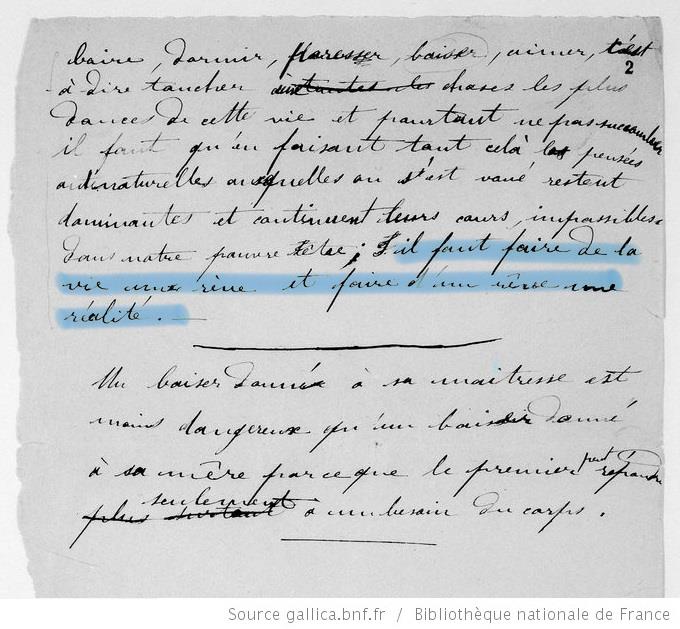 boire, dormir, paresser, baiser, aimer, c'est
2
à dire toucher à toutes les choses les plus
douces de cette vie et pourtant ne pas succomber
il faut qu'en faisant tout celà les pensées
antinaturelles auxquelles on s'est voué restent
dominantes et continuent leurs cours impassibles
dans notre pauvre tête ; il faut faire de la
vie un rêve et faire d'un rêve une
réalité. —
Un baiser donné à sa maitresse est
moins dangereux qu'un baiser donné
à sa mère parceque le premier peut répondre
plus surtout seulement a un besoin du corps.
Source gallica.bnf.fr / Bibliothèque nationale de France